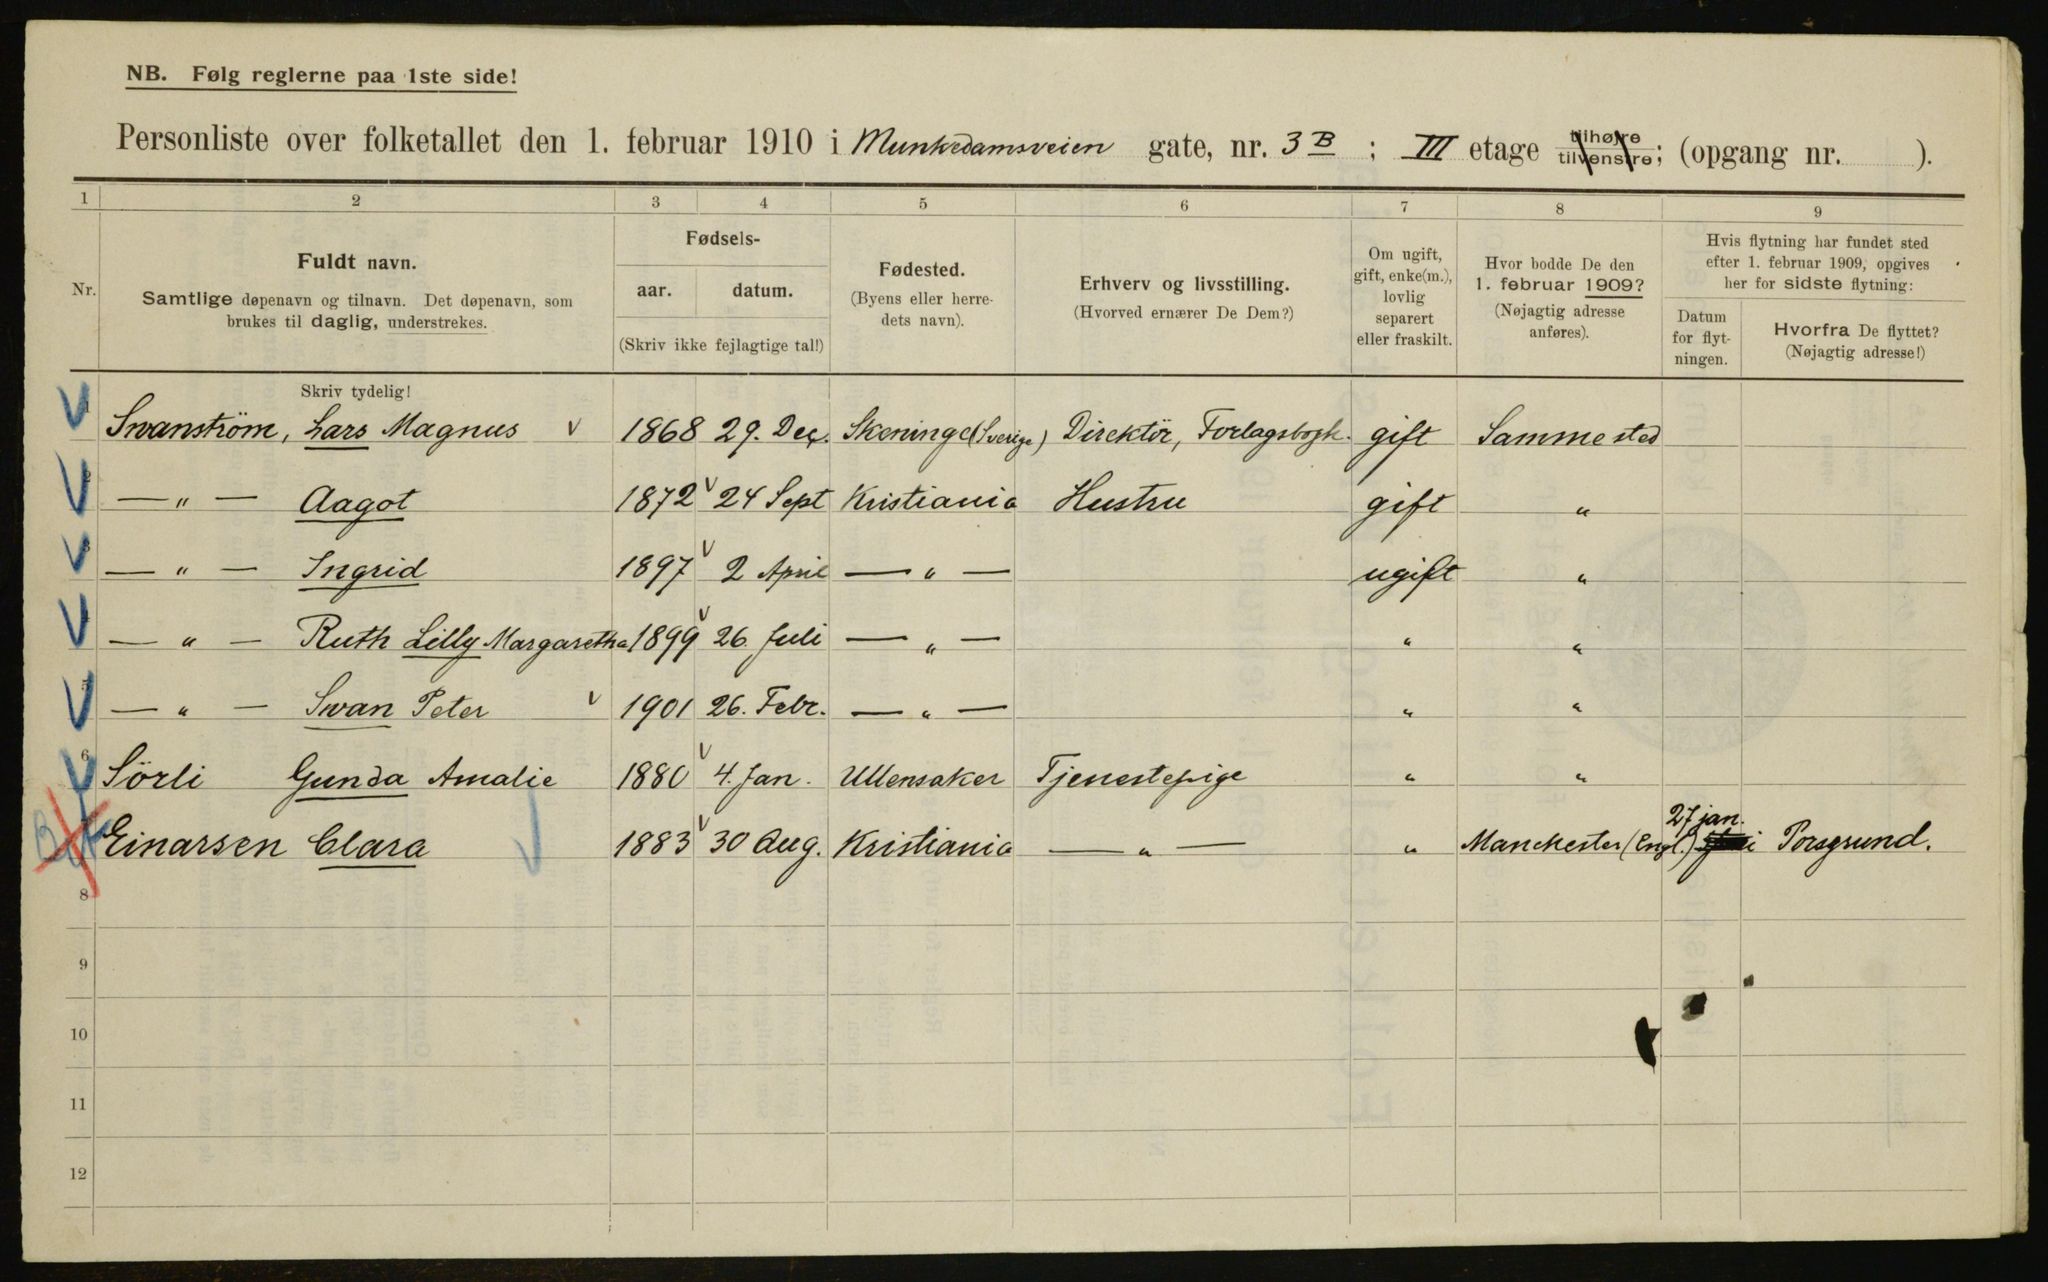 NB. Følg reglerne paa 1ste side!
Personliste over folketallet den 1. februar 1910 i Munkedamsveien gate, nr. 3 B ; III etage tilhøjre tilvenstre; (opgang nr. ).
1 2 3 4 5 6 7 8 9
Nr. Fuldt navn. Samtlige døpenavn og tilnavn. Det døpenavn, som brukes til daglig, understrekes.
Fødsels- aar. datum. (Skriv ikke fejlagtige tal!)
Fødested. (Byens eller herredets navn).
Erhverv og livsstilling. (Hvorved ernærer De Dem?)
Om ugift, gift, enke(m.), lovlig separert eller fraskilt.
Hvor bodde De den 1. februar 1909? (Nøjagtig adresse anføres).
Hvis flytning har fundet sted efter 1. februar 1909, opgives her for sidste flytning:
Datum for flytningen. Hvorfra De flyttet? (Nøjagtig adresse!)
Skriv tydelig!
1 Swanström, Lars Magnus 1868 29. Dec. Skeninge (Sverige) Direktör, Forlagsbogh. gift Samme sted
2 — " — Aagot 1872 24 Sept Kristiania Hustru gift "
3 — " — Ingrid 1897 2 April — " — ugift "
4 — " — Ruth Lilly Margaretha 1899 26. Juli — " — " "
5 — " — Swan Peter 1901 26. Febr. — " — " "
6 Sörli Gunda Amalie 1880 4. Jan. Ullensaker Tjenestepige " "
Einarsen Clara 1883 30 Aug. Kristiania — " — " Manchester (Engl.) 27 jan. Porsgrund.
8
9
10
11
12